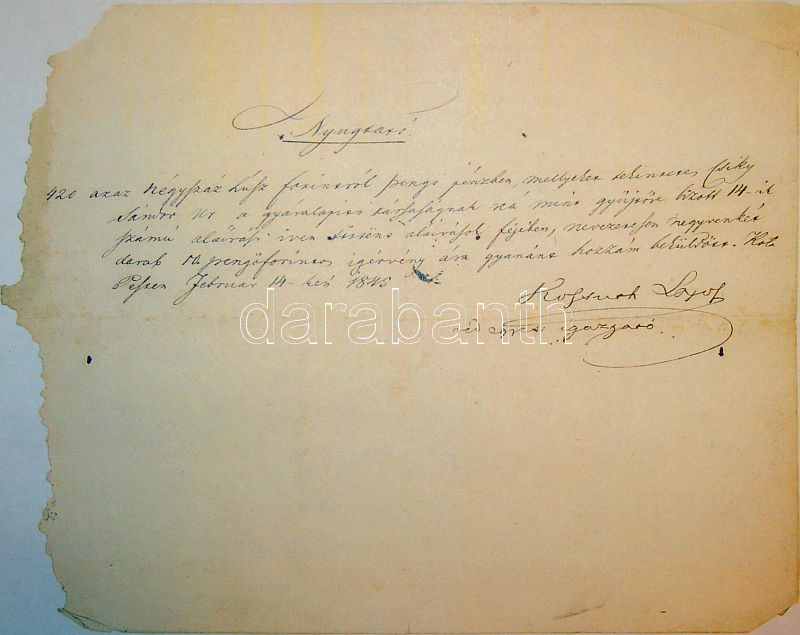 Nyugtató.
420 azaz Négyszáz húsz forintról pengő pénzben, mellyeket tekintetes Csiky
Sándor Ur a gyáralapitó társaságnak reá mint gyüjtőre bizott 14-ik
számú aláirási iven történt aláirások fejében, nevezetesen negyvenkét
darab pengőforintos igérvény ára gyanánt hozzám beküldött. Kelt
Pesten Februar 14-kén 1845
Kossuth Lajos
véd egyleti igazgató.
darabanth